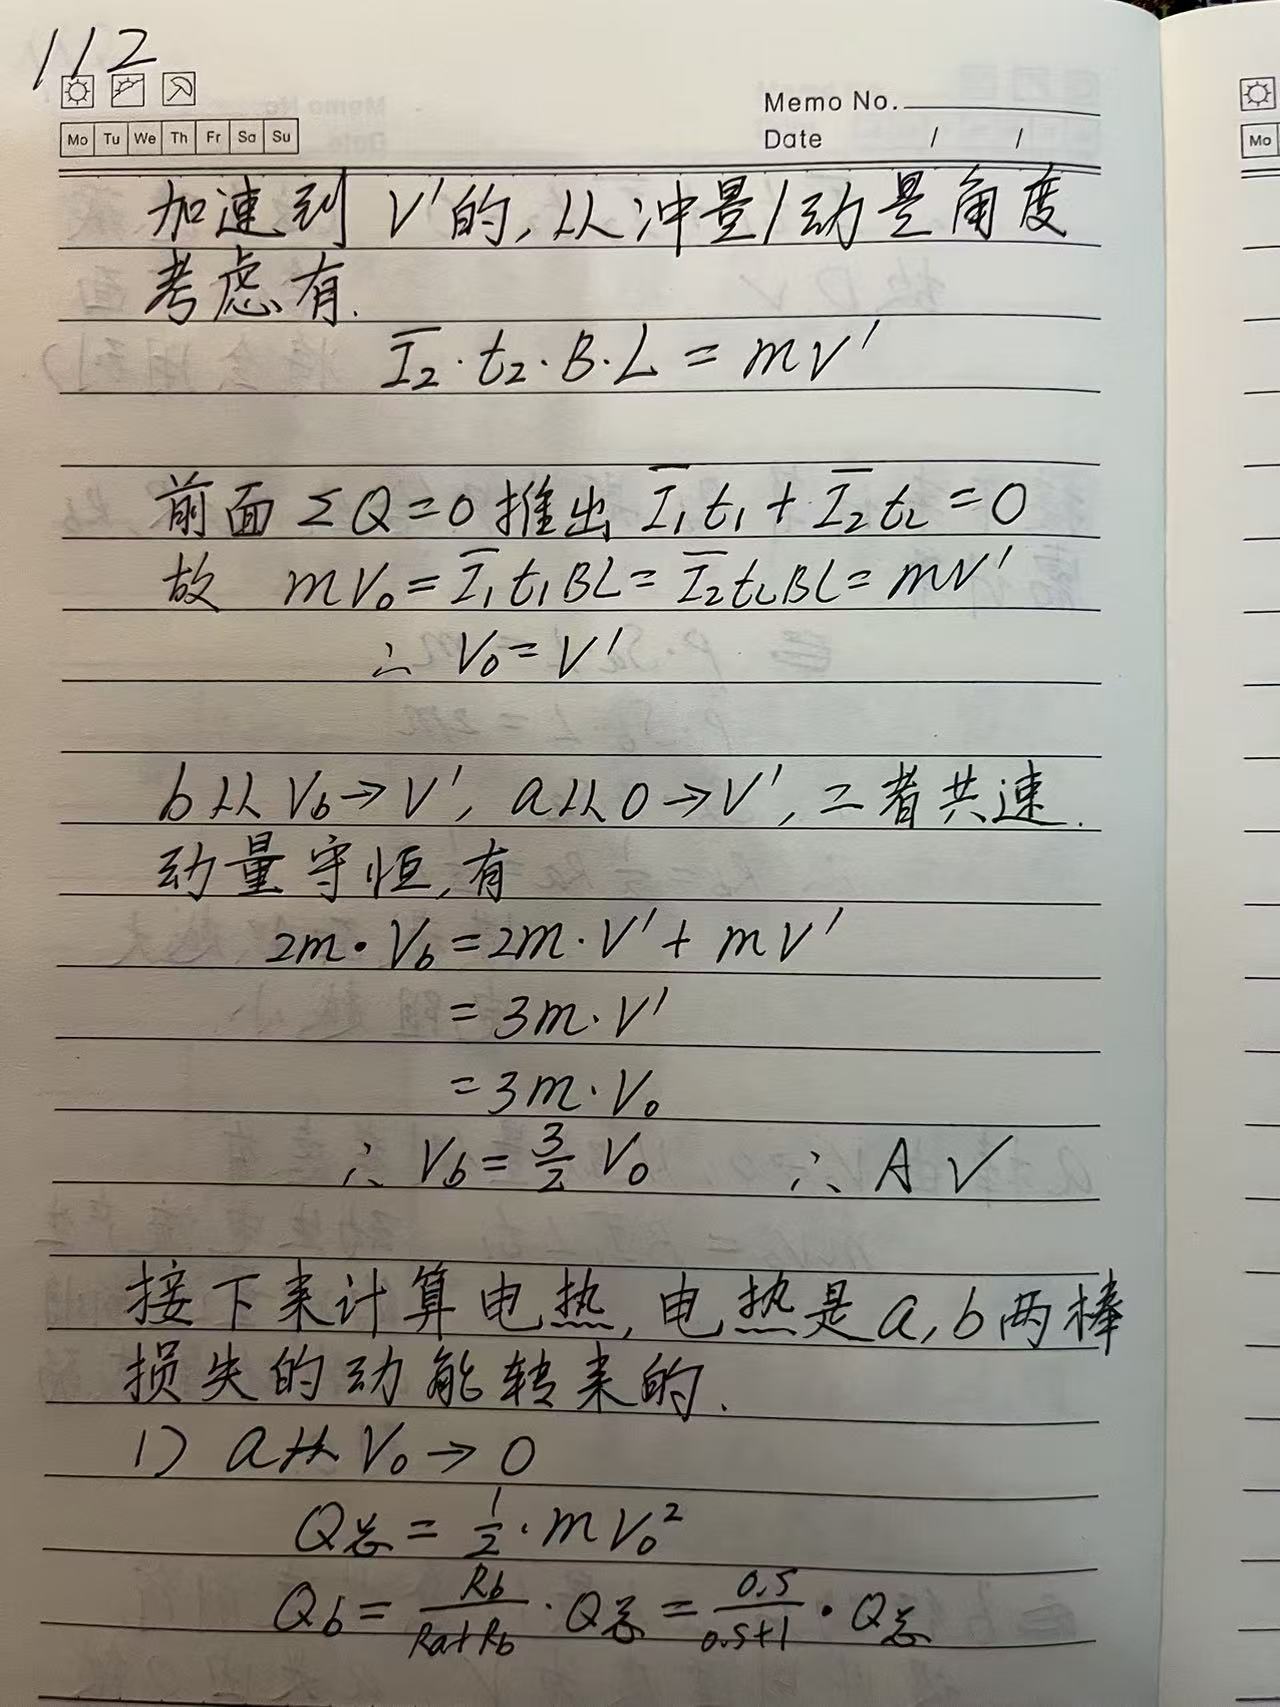 112
Memo No.
Mo Tu We Th Fr Sa Su
Date / /
Mo
加速到 V′的, 从冲量/动量角度
考虑有.
I̅₂·t₂·B·L = mV′
前面 ΣQ=0 推出 I̅₁t₁+I̅₂t₂=0
故 mV₀=I̅₁t₁BL=I̅₂t₂BL=mV′
∴ V₀=V′
b从 V_b→V′, a从0→V′, 二者共速.
动量守恒, 有
2m·V_b=2m·V′+mV′
=3m·V′
=3m·V₀
∴ V_b=3/2 V₀ ∴ A √
接下来计算电热, 电热是a, b两棒
损失的动能转来的.
1) a从 V₀→0
Q总=1/2·mV₀²
Q_b=R_b/(R_a+R_b)·Q总=0.5/(0.5+1)·Q总